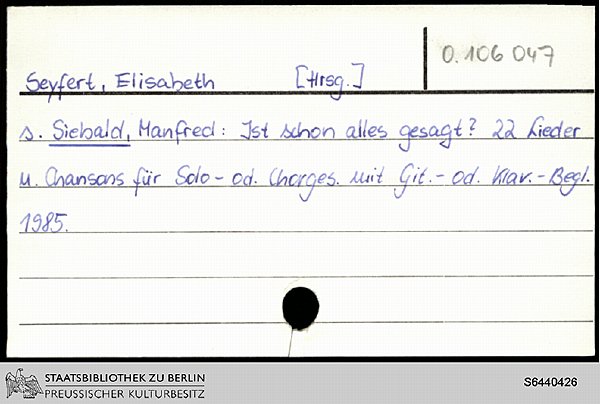 O.106 047
Seyfert, Elisabeth [Hrsg.]
s. Siebald, Manfred: Ist schon alles gesagt? 22 Lieder
u. Chansons für Solo- od. Chorges. mit Git.- od. Klav.-Begl.
1985.
STAATSBIBLIOTHEK ZU BERLIN
PREUSSISCHER KULTURBESITZ
S6440426